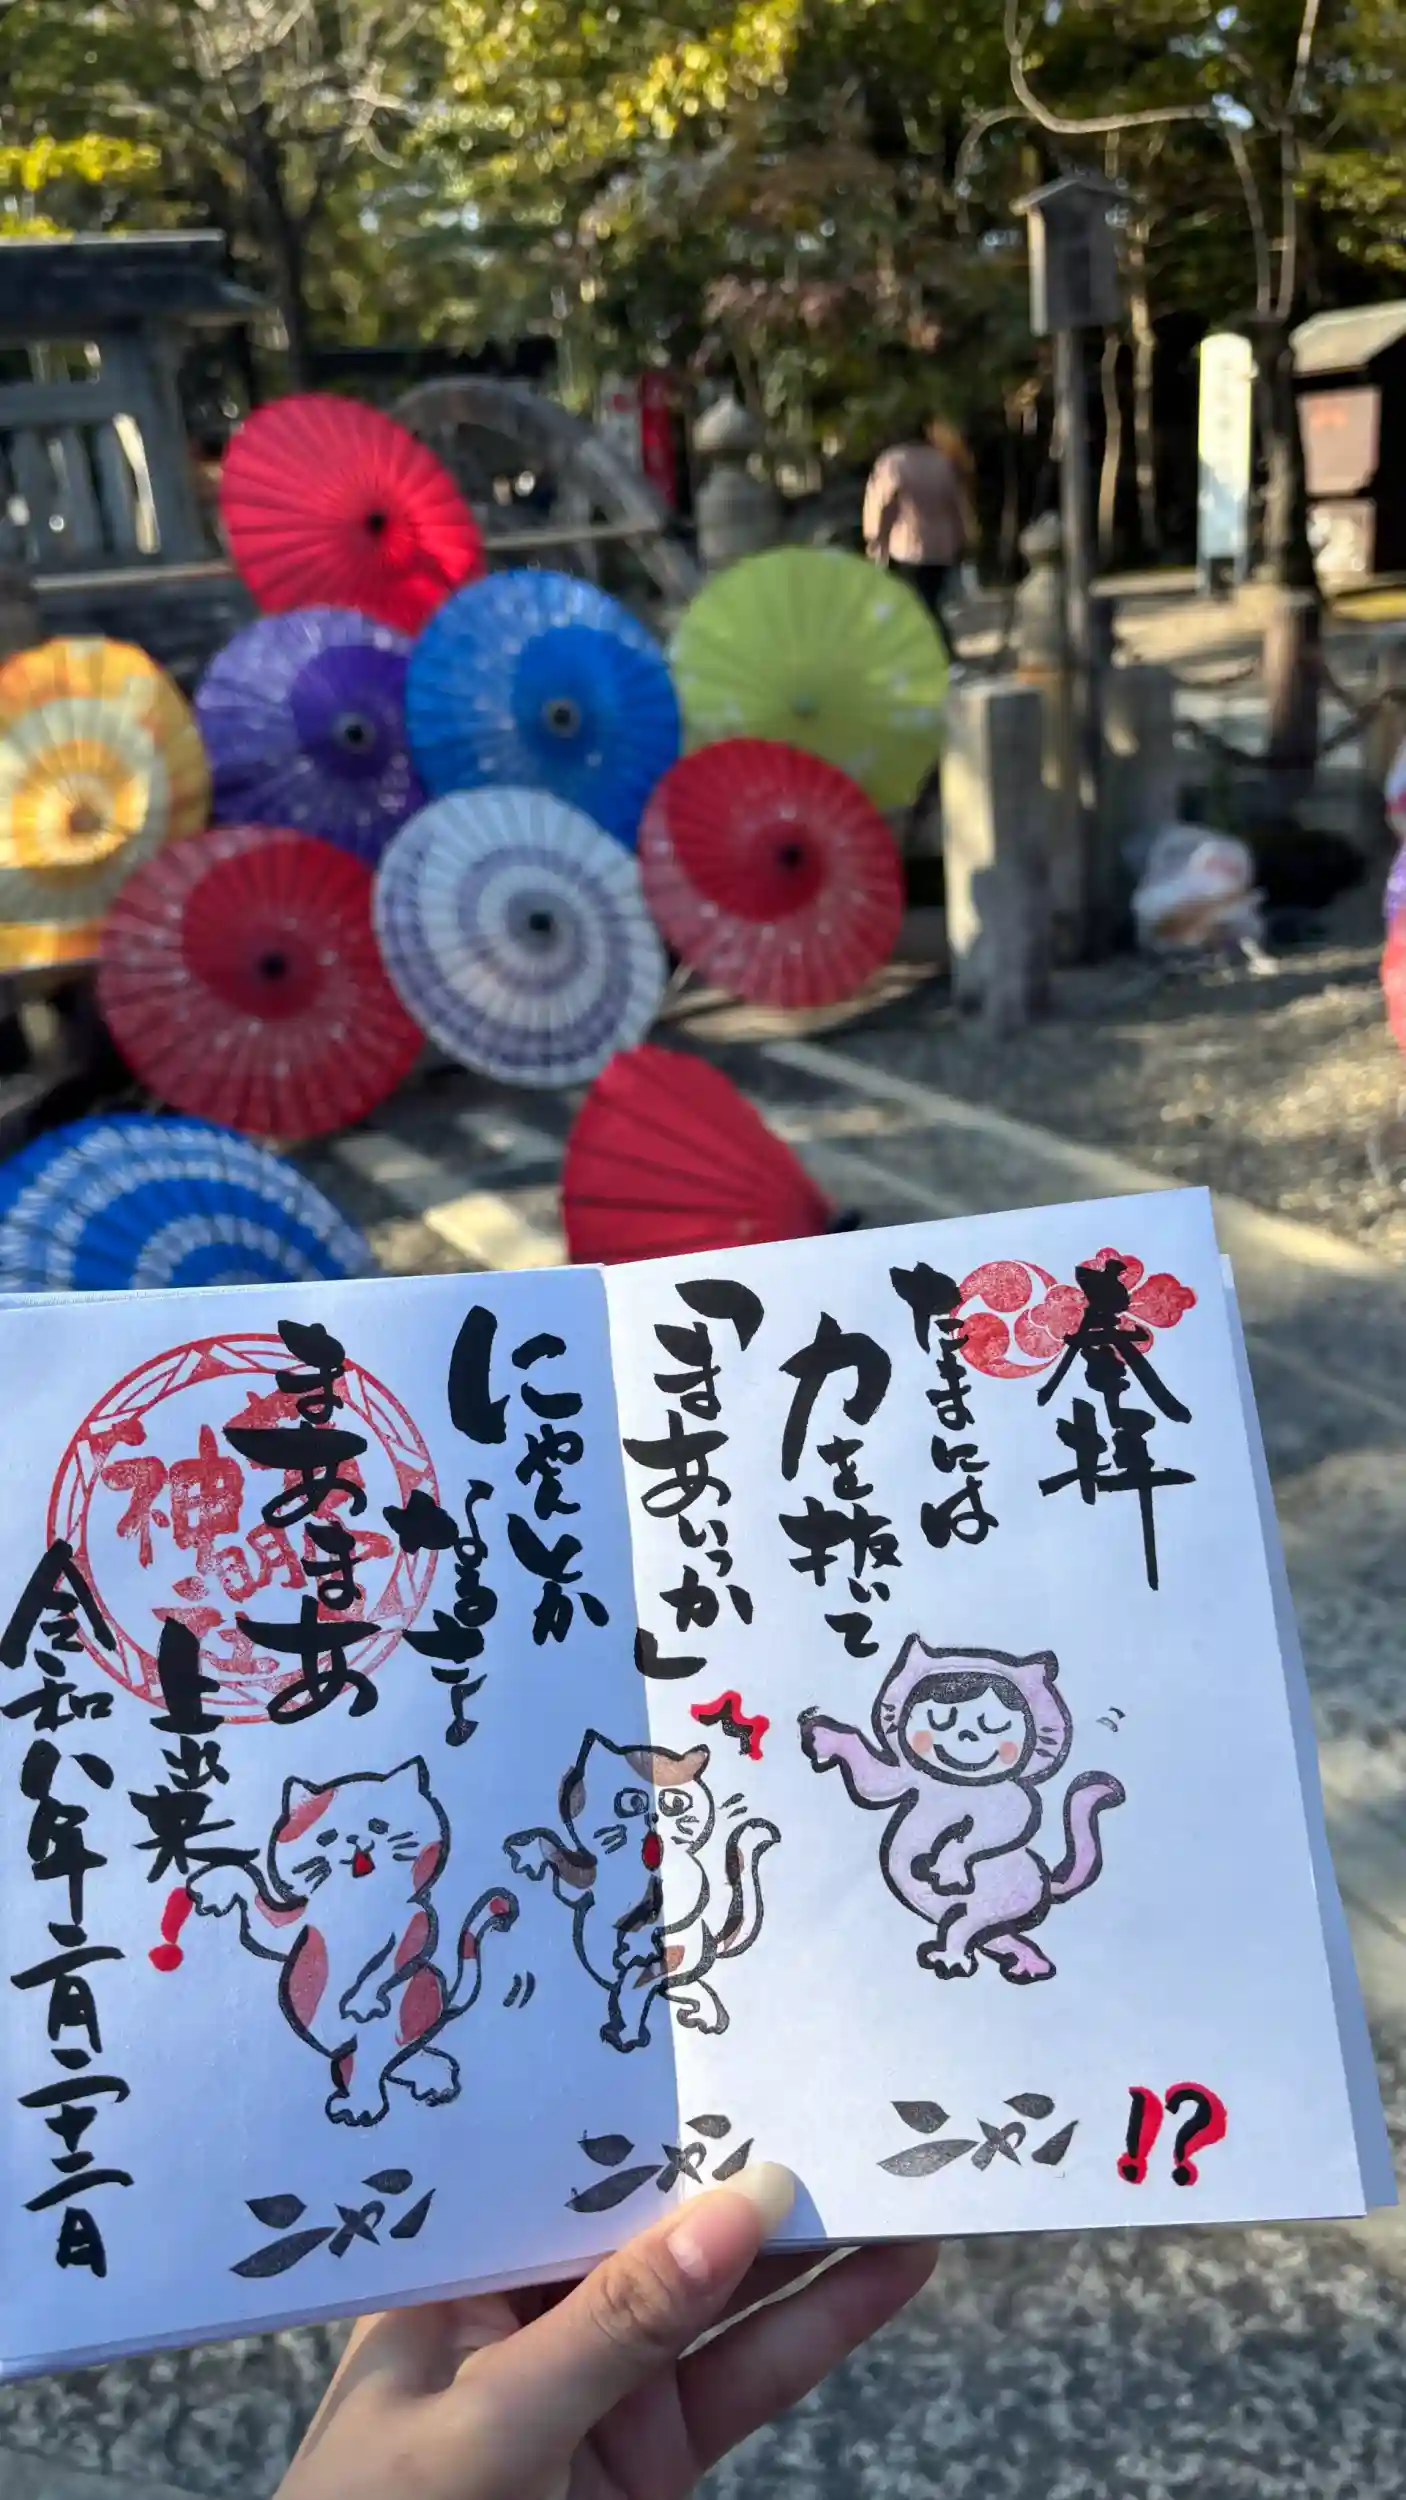 奉拝
たまには
力を抜いて
「まあいっか」
にゃんとか
なるさ
まあまあ
上出来!
令和八年二月二十二日
神明社
!?
ニャン
ニャン
ニャン